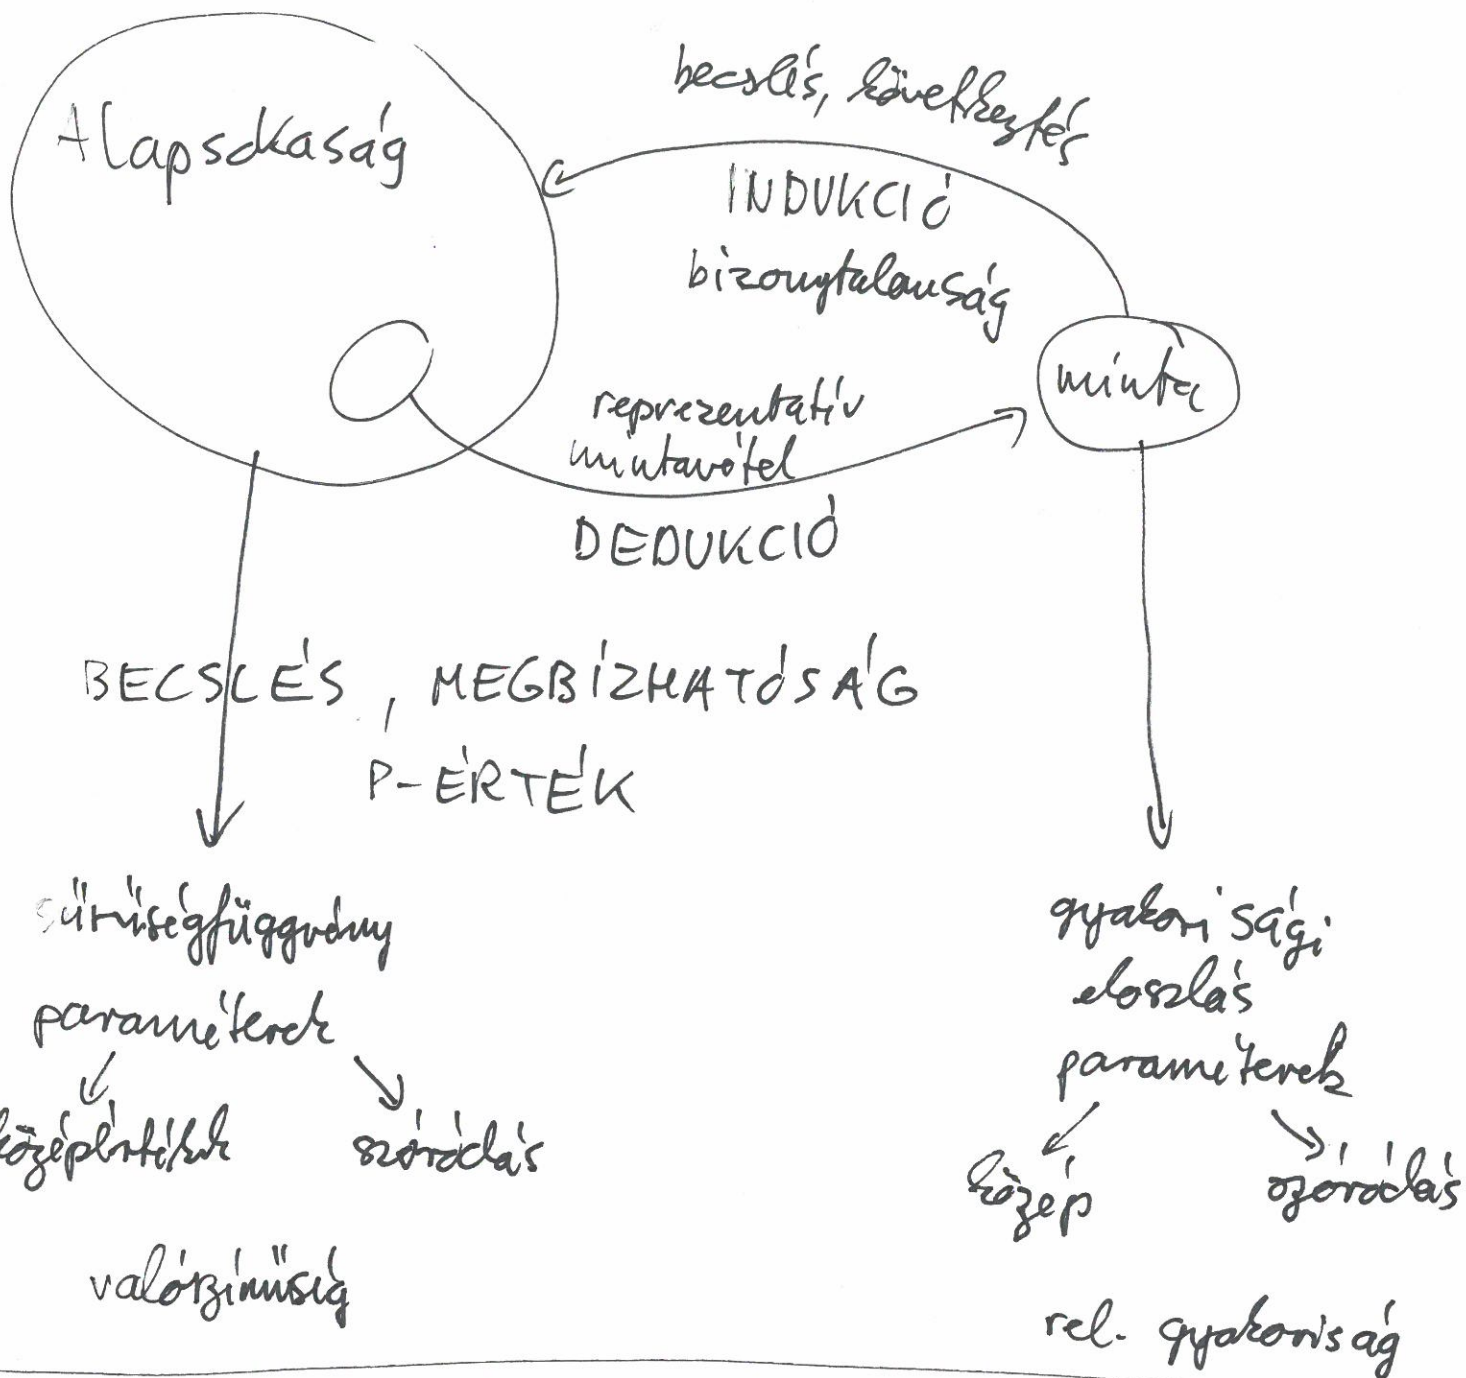 Alapsokaság
becslés, következtés
INDUKCIÓ
bizonytalanság
minta
reprezentatív
mintavétel
DEDUKCIÓ
BECSLÉS, MEGBÍZHATÓSÁG
P-ÉRTÉK
sűrűségfüggvény
paraméterek
középértékek
szóródás
valószínűség
gyakorisági
eloszlás
paraméterek
közép
szóródás
rel. gyakoriság